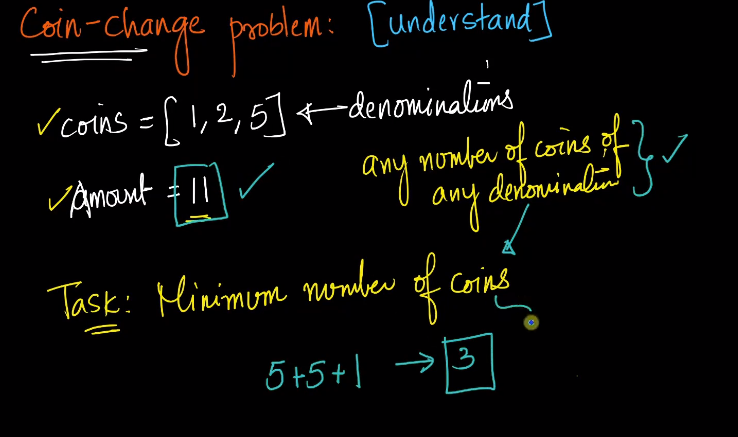 Coin-change problem: [understand]
coins = [1, 2, 5] ← denominations
any number of coins of
any denomination
Amount = 11
Task: Minimum number of coins
5+5+1 → 3